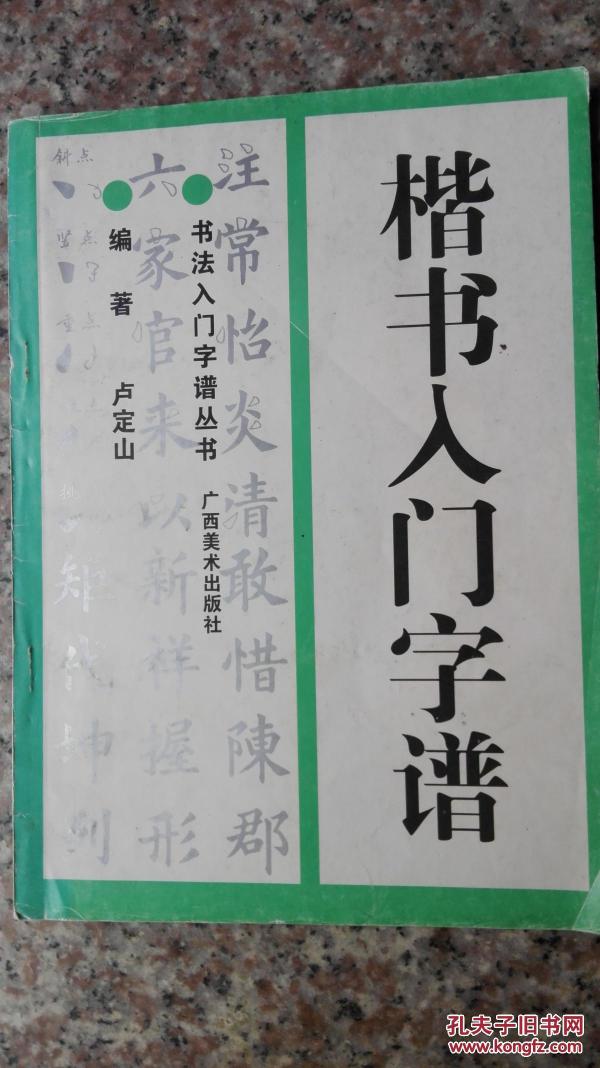 楷书入门字谱
书法入门字谱丛书 广西美术出版社
编著 卢定山
注常怡炎清敢惜陳郡
六家官来以新祥握形
斜点
竖点
重点
挑
矩代坤列
孔夫子旧书网
www.kongfz.com